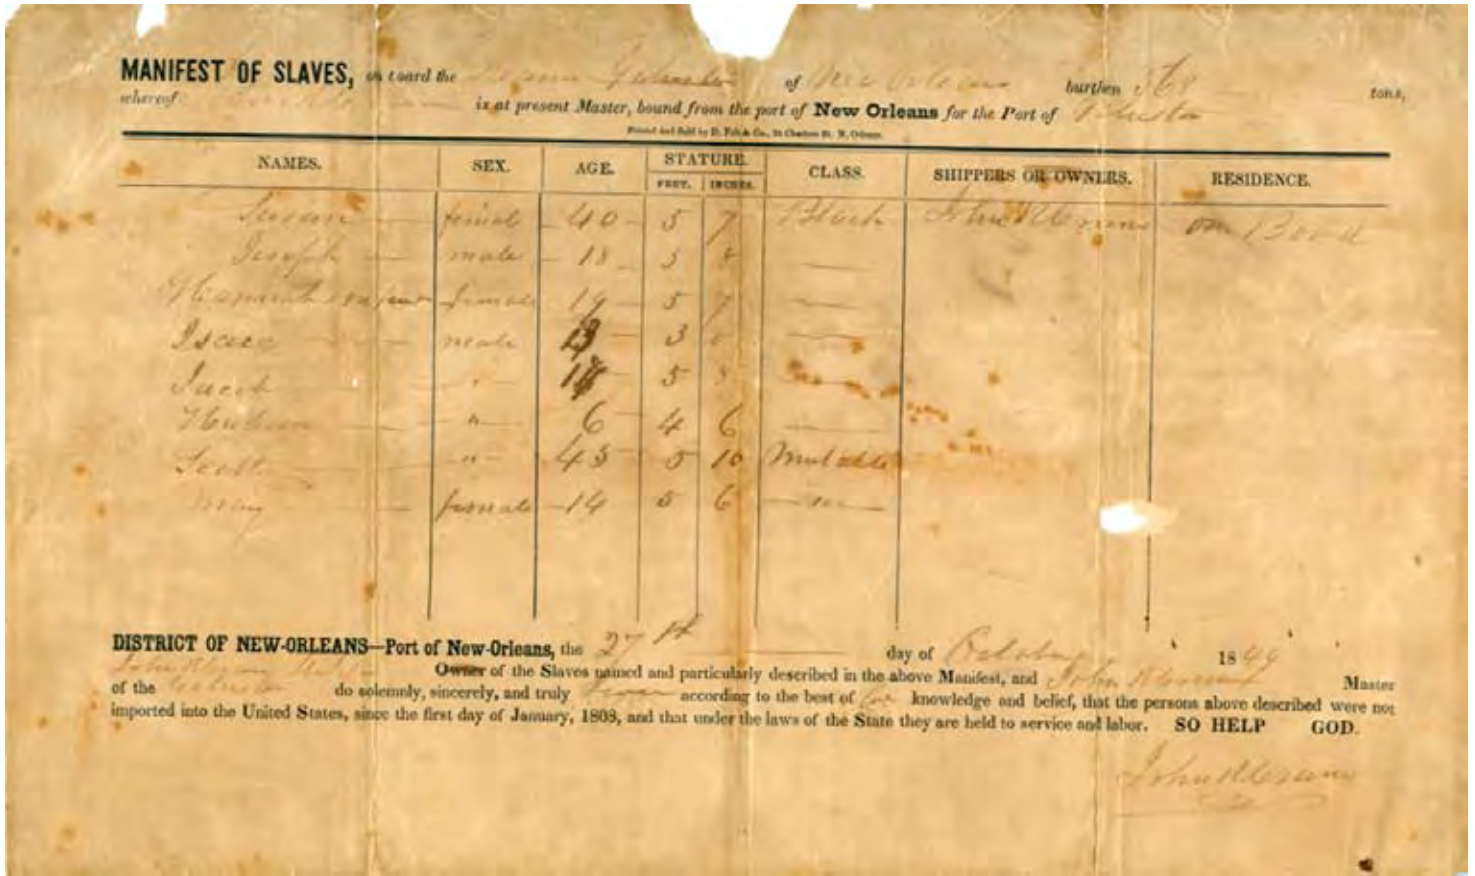 MANIFEST OF SLAVES, on board the of New Orleans burthen 568 tons,
whereof is at present Master, bound from the port of New Orleans for the Port of
Printed and Sold by D. Felt & Co., 24 Chartres St. N. Orleans.
NAMES. SEX. AGE. STATURE. CLASS. SHIPPERS OR OWNERS. RESIDENCE.
FEET. INCHES.
Susan female 40 5 7 Black John R Crane on Board
Joseph male 18 5 8
Hannah female 19 5 7
Isaac male 3
Jacob " 5
" 6 4 6
Scott " 45 5 10 Mulatto
Mary female 14 5 6
DISTRICT OF NEW-ORLEANS—Port of New-Orleans, the 27th day of October 1849
Owner of the Slaves named and particularly described in the above Manifest, and John R Crane Master
of the do solemnly, sincerely, and truly Swear according to the best of our knowledge and belief, that the persons above described were not
imported into the United States, since the first day of January, 1808, and that under the laws of the State they are held to service and labor. SO HELP GOD.
John R Crane